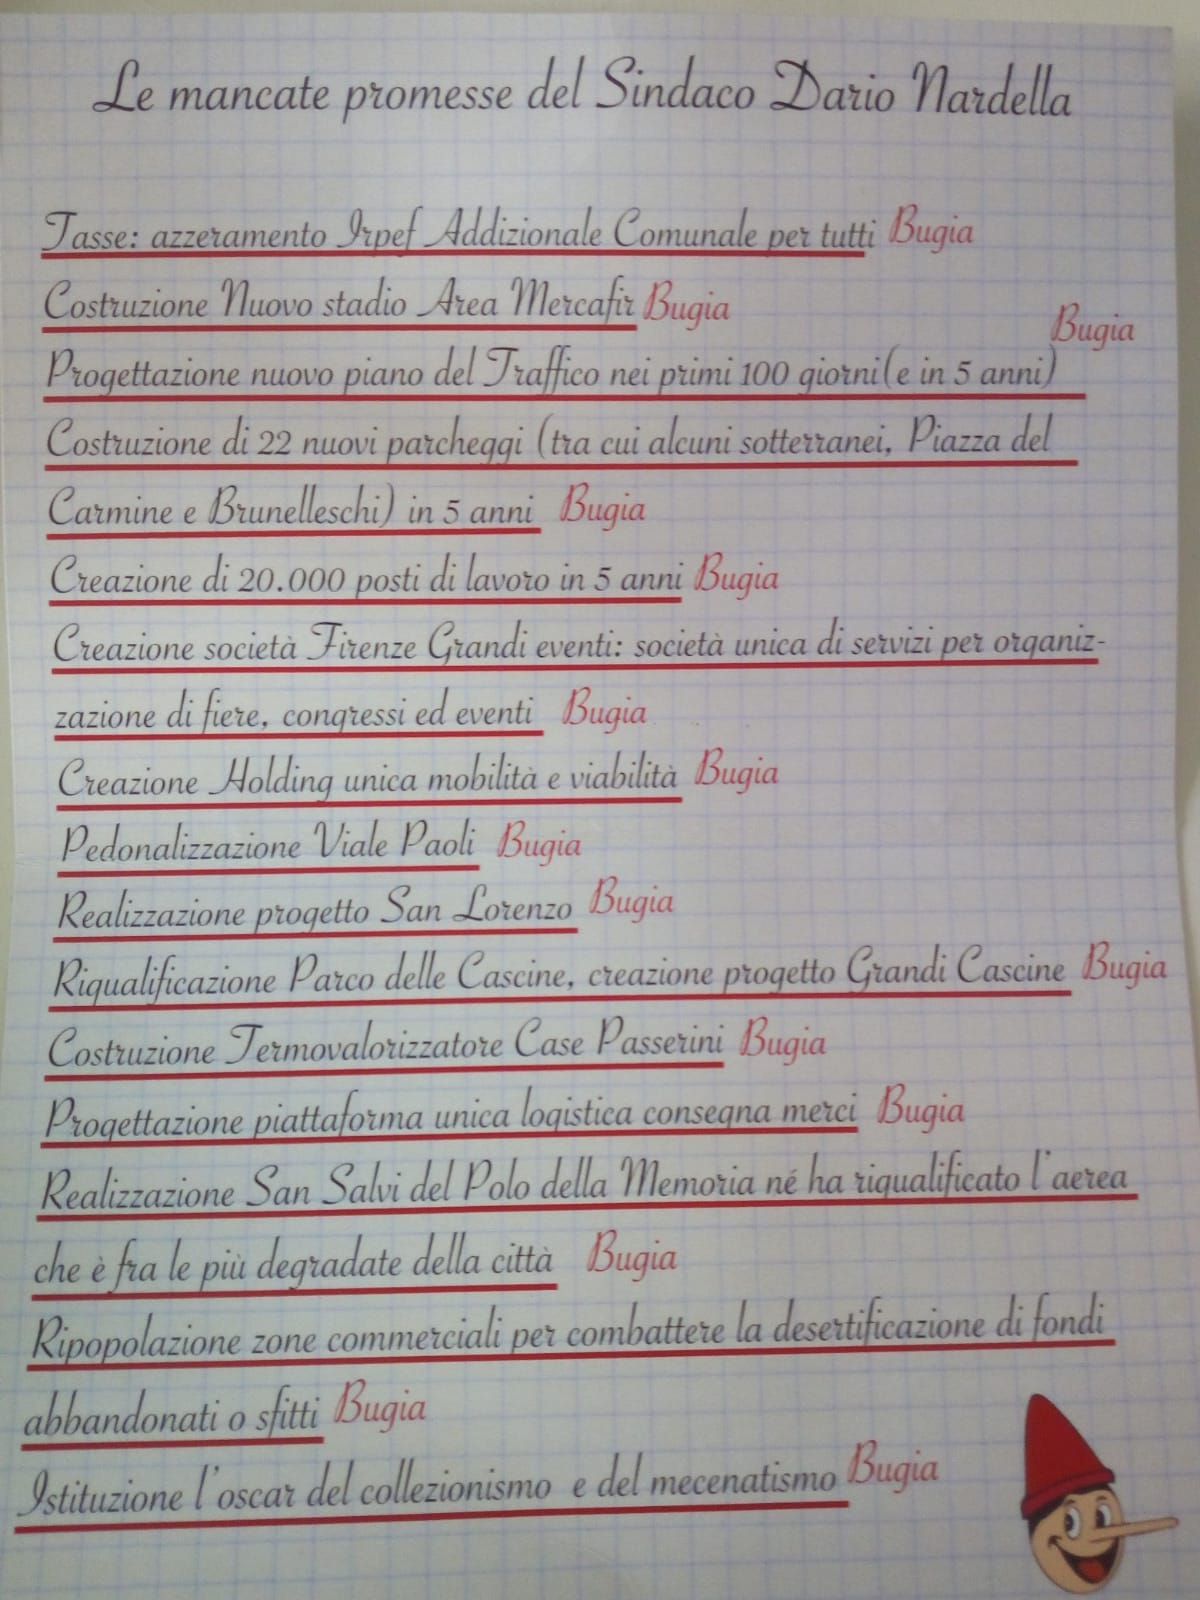 Le mancate promesse del Sindaco Dario Nardella
Tasse: azzeramento Irpef Addizionale Comunale per tutti Bugia
Costruzione Nuovo stadio Area Mercafir Bugia
Bugia
Progettazione nuovo piano del Traffico nei primi 100 giorni(e in 5 anni)
Costruzione di 22 nuovi parcheggi (tra cui alcuni sotterranei, Piazza del
Carmine e Brunelleschi) in 5 anni Bugia
Creazione di 20.000 posti di lavoro in 5 anni Bugia
Creazione società Firenze Grandi eventi: società unica di servizi per organiz-
zazione di fiere, congressi ed eventi Bugia
Creazione Holding unica mobilità e viabilità Bugia
Pedonalizzazione Viale Paoli Bugia
Realizzazione progetto San Lorenzo Bugia
Riqualificazione Parco delle Cascine, creazione progetto Grandi Cascine Bugia
Costruzione Termovalorizzatore Case Passerini Bugia
Progettazione piattaforma unica logistica consegna merci Bugia
Realizzazione San Salvi del Polo della Memoria né ha riqualificato l'aerea
che è fra le più degradate della città Bugia
Ripopolazione zone commerciali per combattere la desertificazione di fondi
abbandonati o sfitti Bugia
Istituzione l'oscar del collezionismo e del mecenatismo Bugia